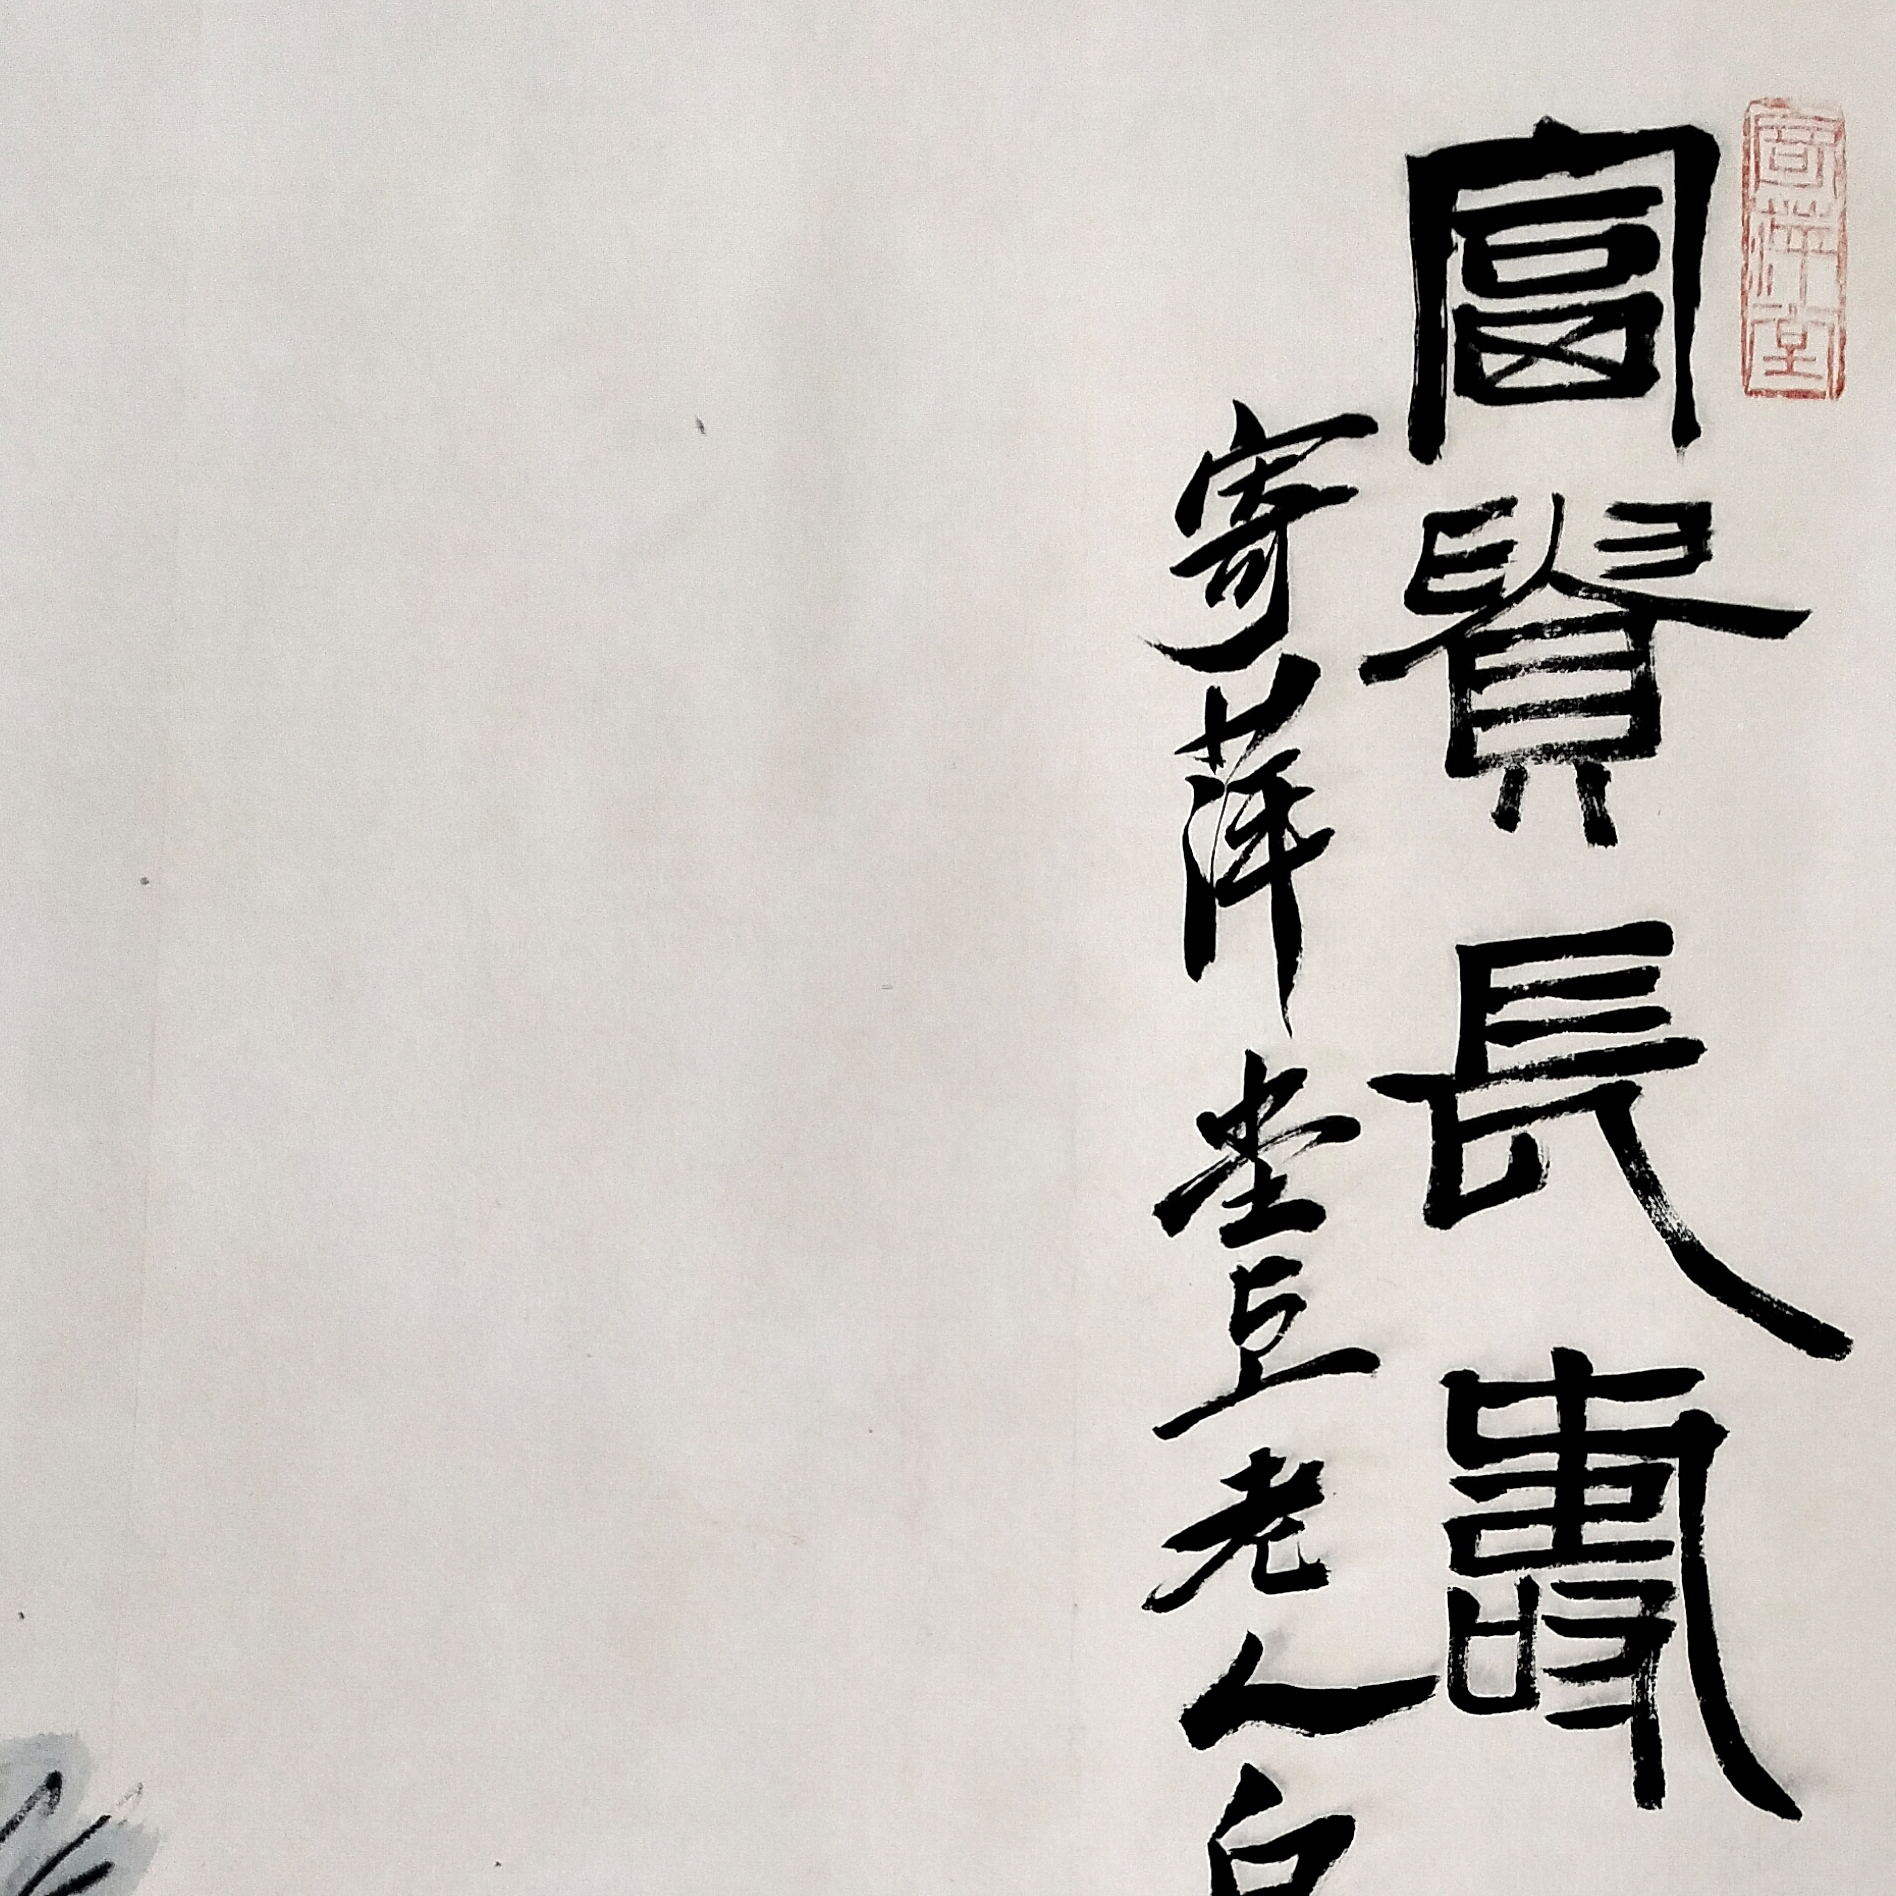 寄萍堂
富貴長壽
寄萍堂上老人白